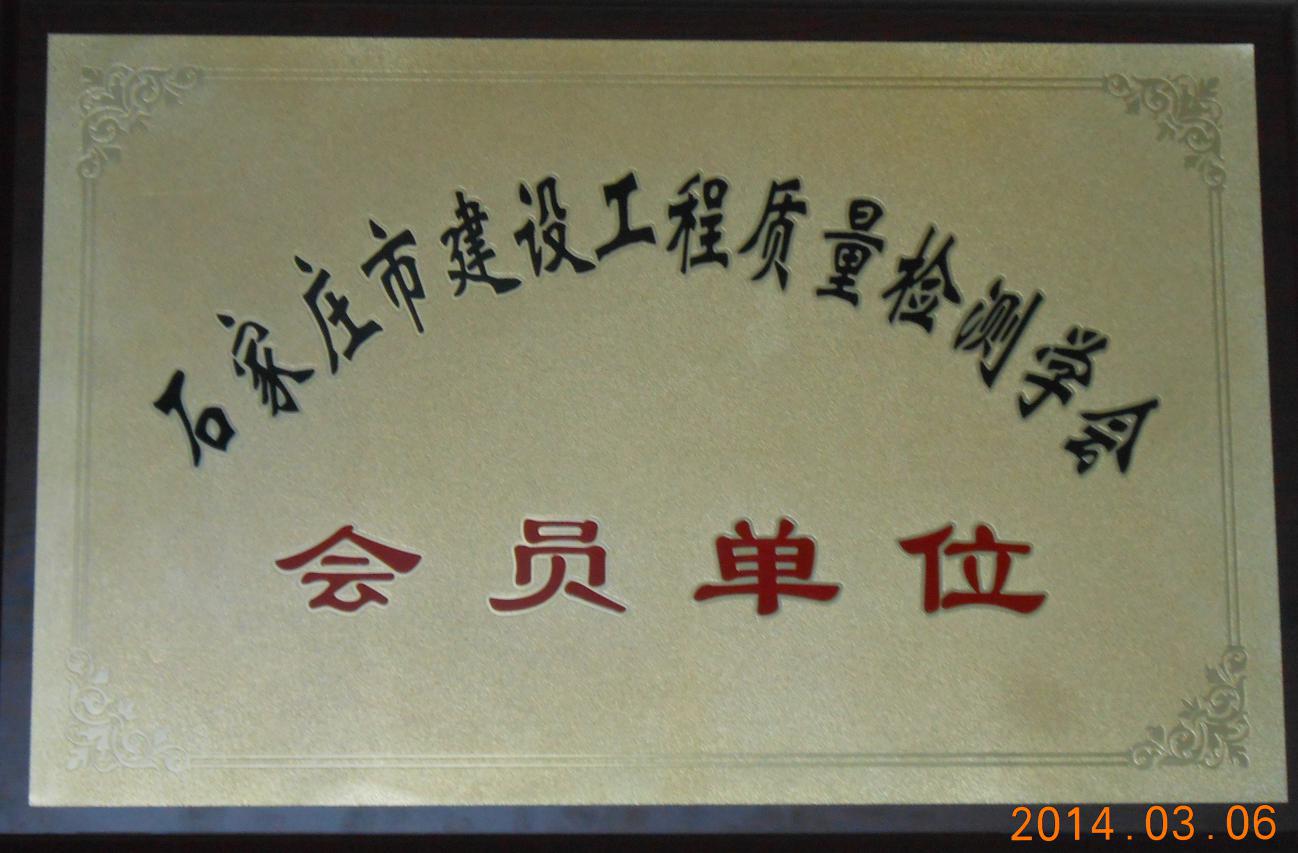 石家庄市建设工程质量检测学会
会员单位
2014.03.06